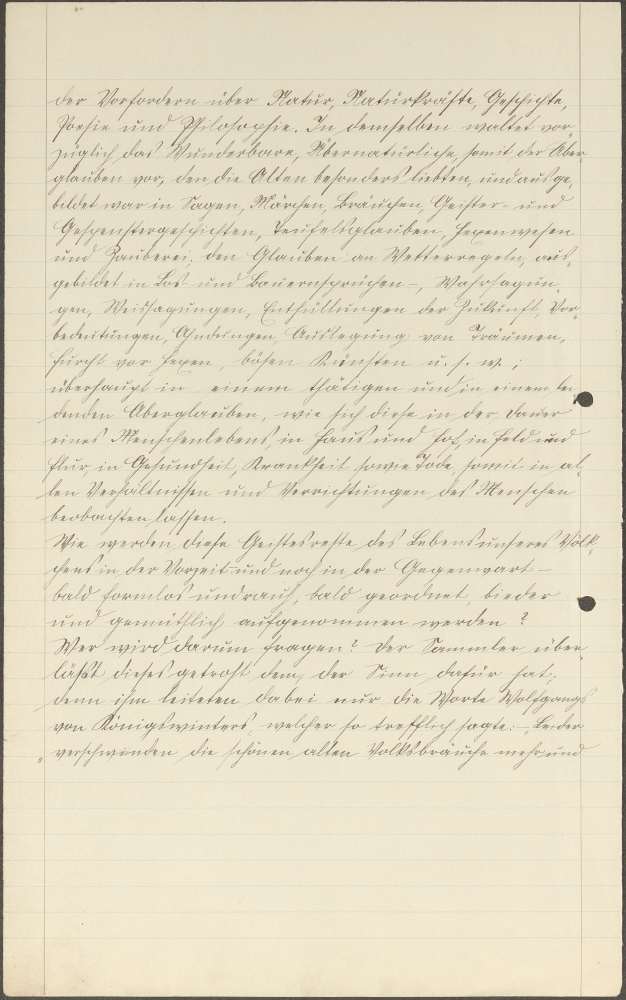 der Vorfordern über Natur, Naturkräfte, Geschichte,
Poesie und Philosophie. In demselben waltet vor-
züglich das Wunderbare, Übernatürliche, somit der Aber-
glauben vor, den die Alten besonders liebten, und ausge-
bildet war in Sagen, Märchen, Bräuchen, Geister- und
Gespenstergeschichten, Teufelsglauben, Hexenwesen
und Zauberei; den Glauben an Wetterregeln, aus-
gebildet in Los- und Bauernsprüchen –, Wahrsagun-
gen, Weissagungen, Enthüllungen der Zukunft, Vor-
bedeutungen, Ahndungen, Auslegung von Träumen,
Furcht vor Hexen, bösen Künsten u. s. w.;
überhaupt in einem thätigen und in einem lei-
denden Aberglauben, wie sich diese in der Dauer
eines Menschenlebens, in Haus und Hof, in Feld und
Flur, in Gesundheit, Krankheit sowie Tode, somit in al-
len Verhältnissen und Verrichtungen des Menschen
beobachten lassen.
Wie werden diese Geistesreste des Lebens unseres Völk-
chens in der Vorzeit und noch in der Gegenwart –
bald formlos und rauh, bald geordnet, bieder
und gemüthlich aufgenommen werden?
Wer wird darum fragen? Der Sammler über-
läßt dieses getrost dem, der Sinn dafür hat;
denn ihn leiteten dabei nur die Worte Wolfgangs
von Königswinters, welcher so trefflich sagte: – „Leider
„verschwinden die schönen alten Volksbräuche mehr und